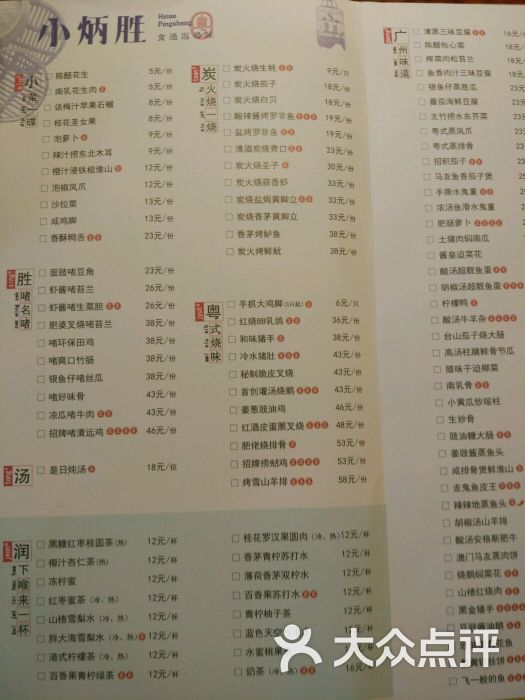 小炳胜
Hsiao
Pingsheng
食通返寻味
粤
小菜一碟
陈醋花生 5元/份
南乳花生肉 5元/份
话梅汁苹果石榴 8元/份
桂花圣女果 9元/份
泡萝卜 9元/份
辣汁捞东北木耳 9元/份
橙汁浸铁棍淮山 12元/份
泡椒凤爪 12元/份
沙拉菜 13元/份
咸鸡脚 13元/份
香酥鸭舌 23元/份
炭火烧一烧
炭火烧生蚝 9元/只
炭火烧茄子 18元/份
炭火烧白贝 18元/份
酸辣酱烤罗非鱼 19元/份
盐烤罗非鱼 19元/份
清酒炭烧青口 23元/份
炭火烧圣子 30元/份
炭火烧蒜香虾 33元/份
炭烧盐焗黄脚立 33元/份
炭烧香茅黄脚立 33元/份
香茅烤鲈鱼 38元/份
炭火烤鲜鱿 38元/份
胜啫名啫
面豉啫豆角 23元/份
虾酱啫苔兰 26元/份
虾酱啫生菜胆 26元/份
肥婆叉烧啫苔兰 38元/份
啫环保田鸡 38元/份
啫爽口竹肠 38元/份
银鱼仔啫丝瓜 38元/份
啫好味骨 43元/份
凉瓜啫牛肉 43元/份
招牌啫清远鸡 46元/份
粤式烧味
手抓大鸡脚(3只起) 6元/只
红烧BB乳鸽 36元/份
和味猪手 38元/份
冷水猪肚 38元/份
秘制脆皮叉烧 38元/份
首创灌汤烧鹅 43元/份
姜葱豉油鸡 43元/份
红酒皮蛋黑叉烧 48元/份
肥佬烧排骨 53元/份
招牌捞𩠌鸡 53元/份
烤雪山羊排 58元/份
汤
是日炖汤 18元/位
润下喉来一杯
黑糖红枣桂圆茶(热) 12元/杯
椰汁杏仁茶(热) 12元/杯
冻柠蜜 12元/杯
红枣蜜茶(冷、热) 12元/杯
山楂雪梨水(冷、热) 12元/杯
胖大海雪梨水(冷、热) 12元/杯
港式柠檬茶(冷、热) 12元/杯
百香果青柠绿茶 12元/杯
桂花罗汉果圆肉(冷、热) 12元/杯
香茅青柠苏打水 12元/杯
薄荷香茅双柠水 12元/杯
百香果苏打水 12元/杯
青柠柚子茶 12元/杯
蓝色天空
水蜜桃果
奶茶(冷、热) 16元/杯
广州味道
清蒸三味豆腐 16元/
陈醋包心菜 18元
榨菜肉松苔兰 18元
鱼香肉汁三味豆腐 18元
银鱼仔蒸胜瓜
番茄海鲜豆腐
支竹捞水东芥菜
粤式蒸凤爪
粤式蒸排骨
招积茄子
马友鱼番茄煲
手撕水鬼重
浓汤鱼滑水鬼重
肥肠萝卜
土猪肉焖南瓜
酱皇迫菜花
酸汤超靓鱼蛋
胡椒汤超靓鱼蛋
柠檬鸭
酸汤牛羊杂
台山茄子烧大肠
高汤柱脯鲜骨节瓜
腊味干迫椰菜
南乳骨
小黄瓜炒瑶柱
生炒骨
豉油糖大肠
姜豉酱蒸鱼头
咸排骨煲鲜淮山
走鬼鱼皮王
辣辣地蒸鱼头
胡椒汤山羊排
酸汤安格斯肥牛
澳门马友蒸肉饼
烧鹅焖菜花
山楂红烧肉
黑金猪手
豆豉酱油鹅
飞一般的鱼
大众点评